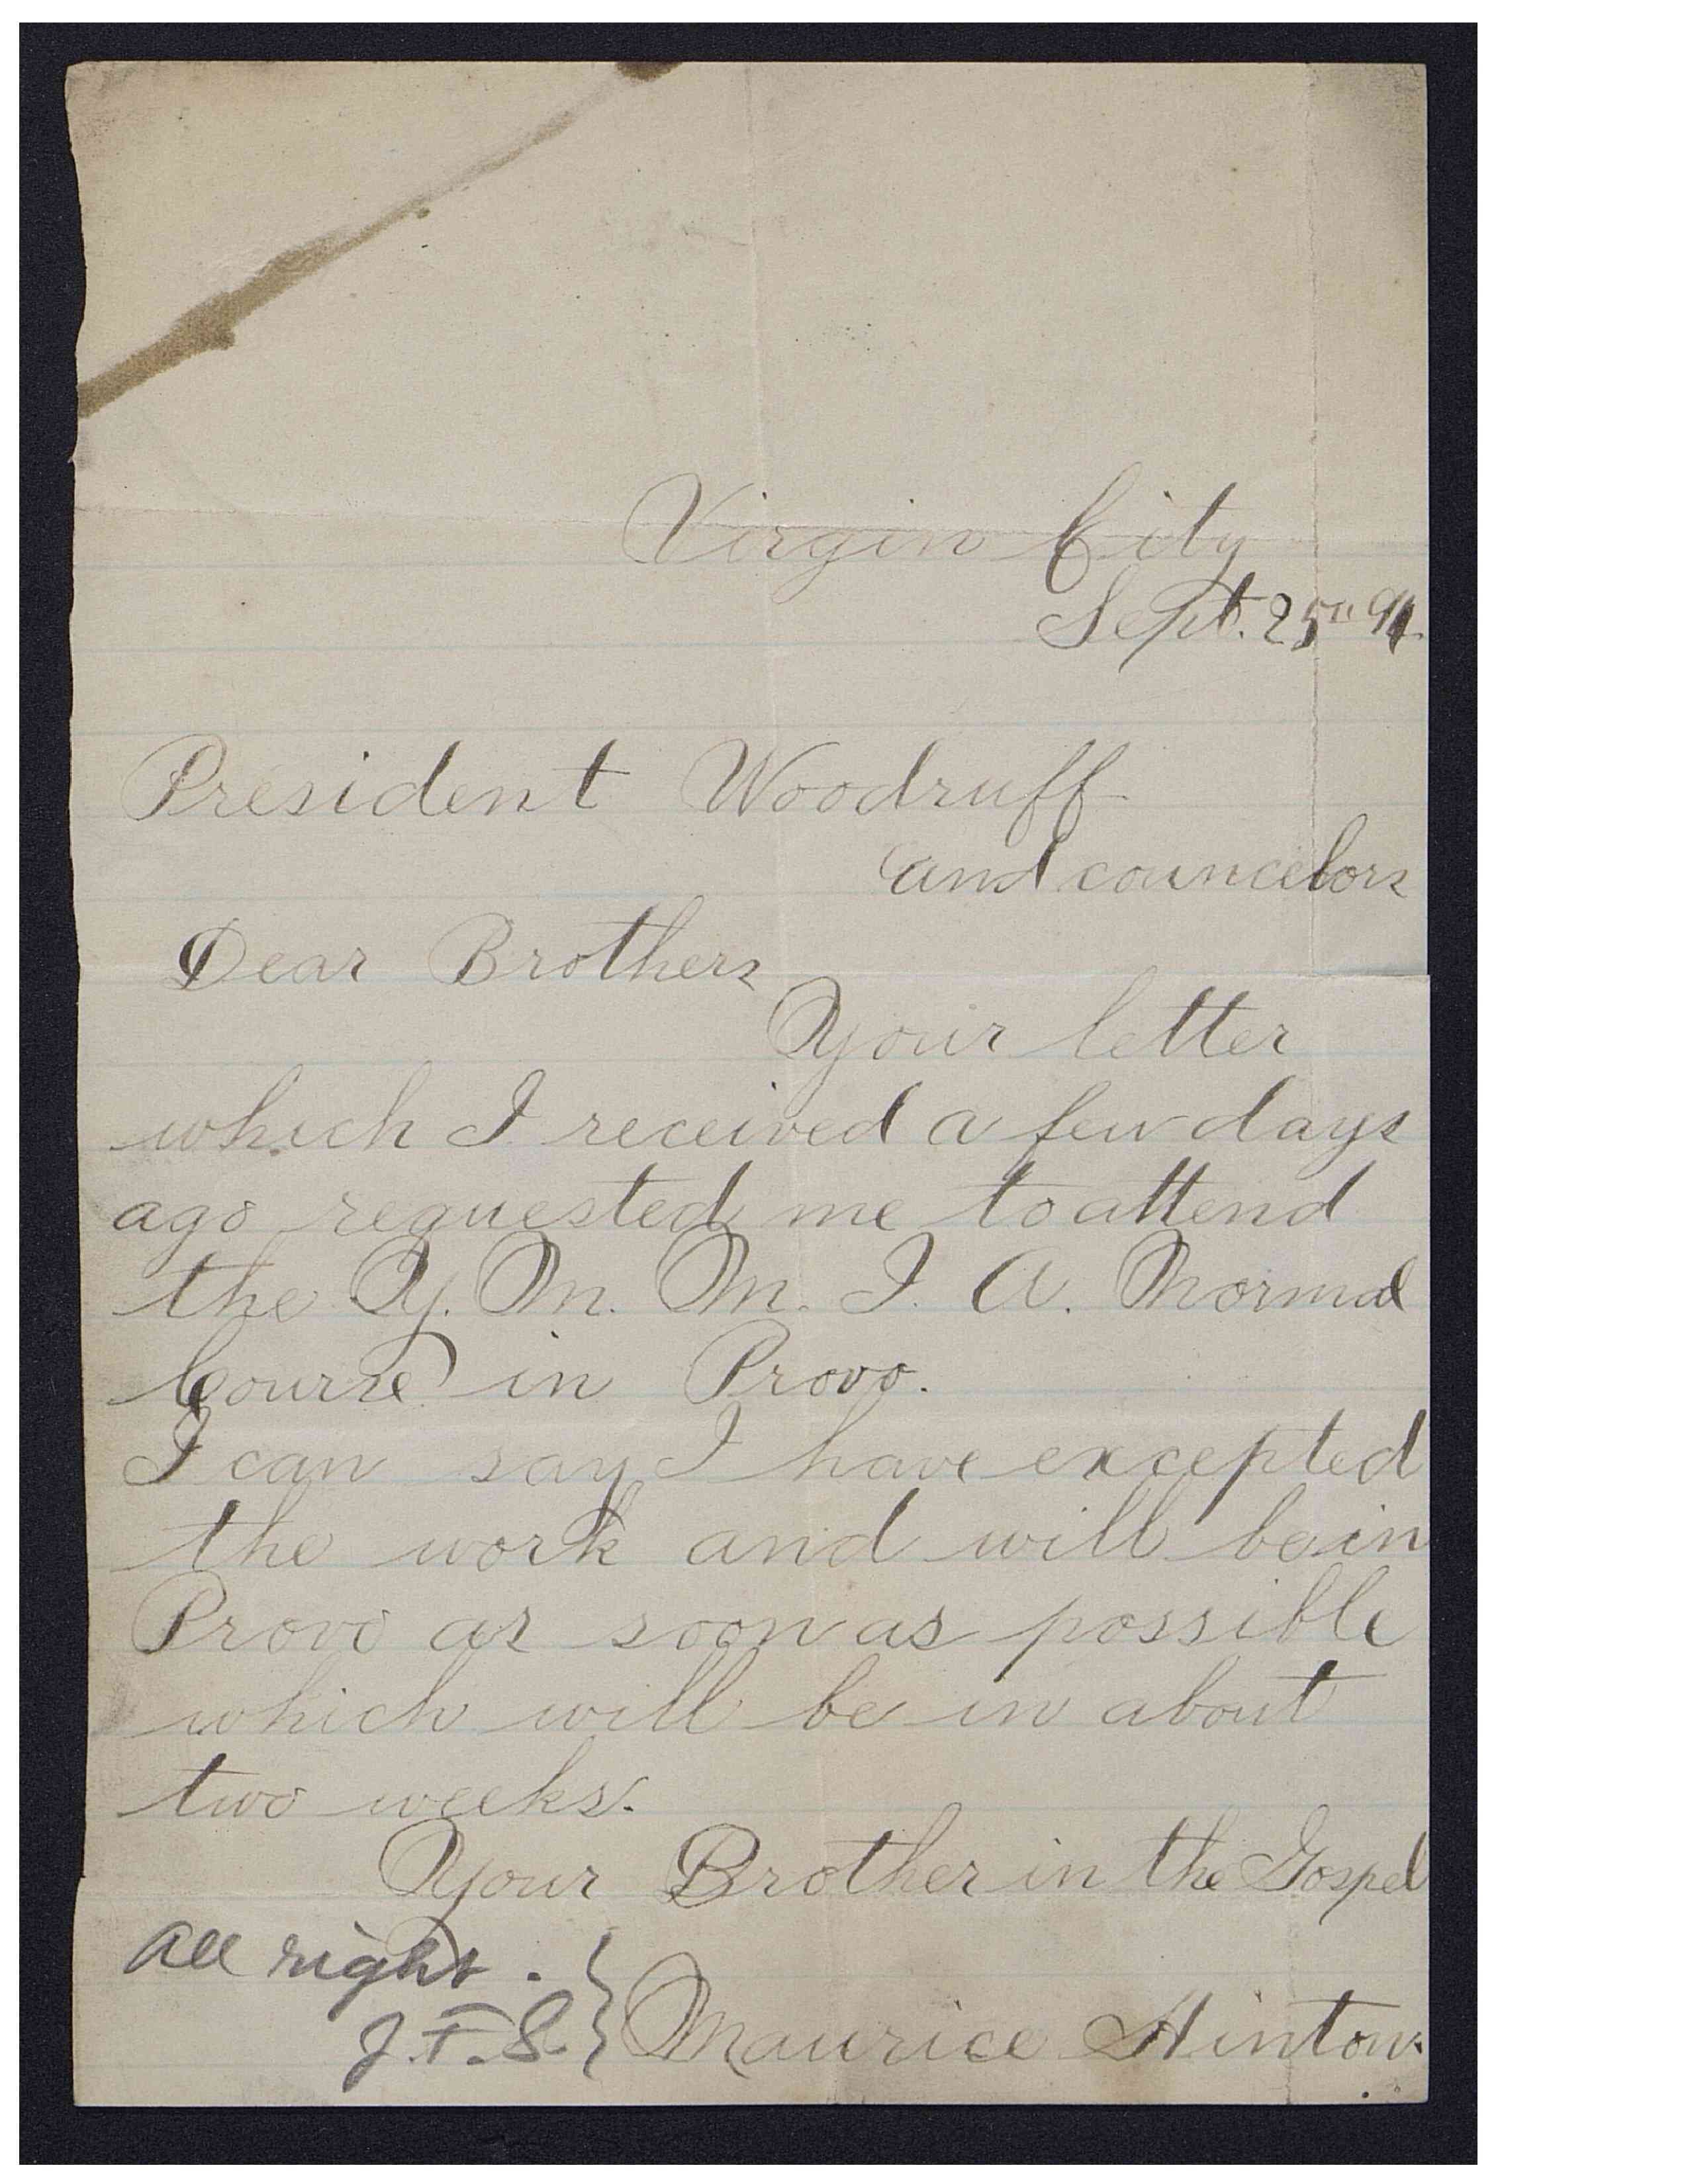 Virgin City
Sept. 25th 94.
President Woodruff
and councelors
Dear Brothers
Your letter
which I received a few days
ago requested me to attend
the Y. M. M. I. A. Normal
Course in Provo.
I can say I have excepted
the work and will be in
Provo as soon as possible
which will be in about
two weeks.
Your Brother in the Gospel
Maurice Hinton.
All right.
J. F. S.